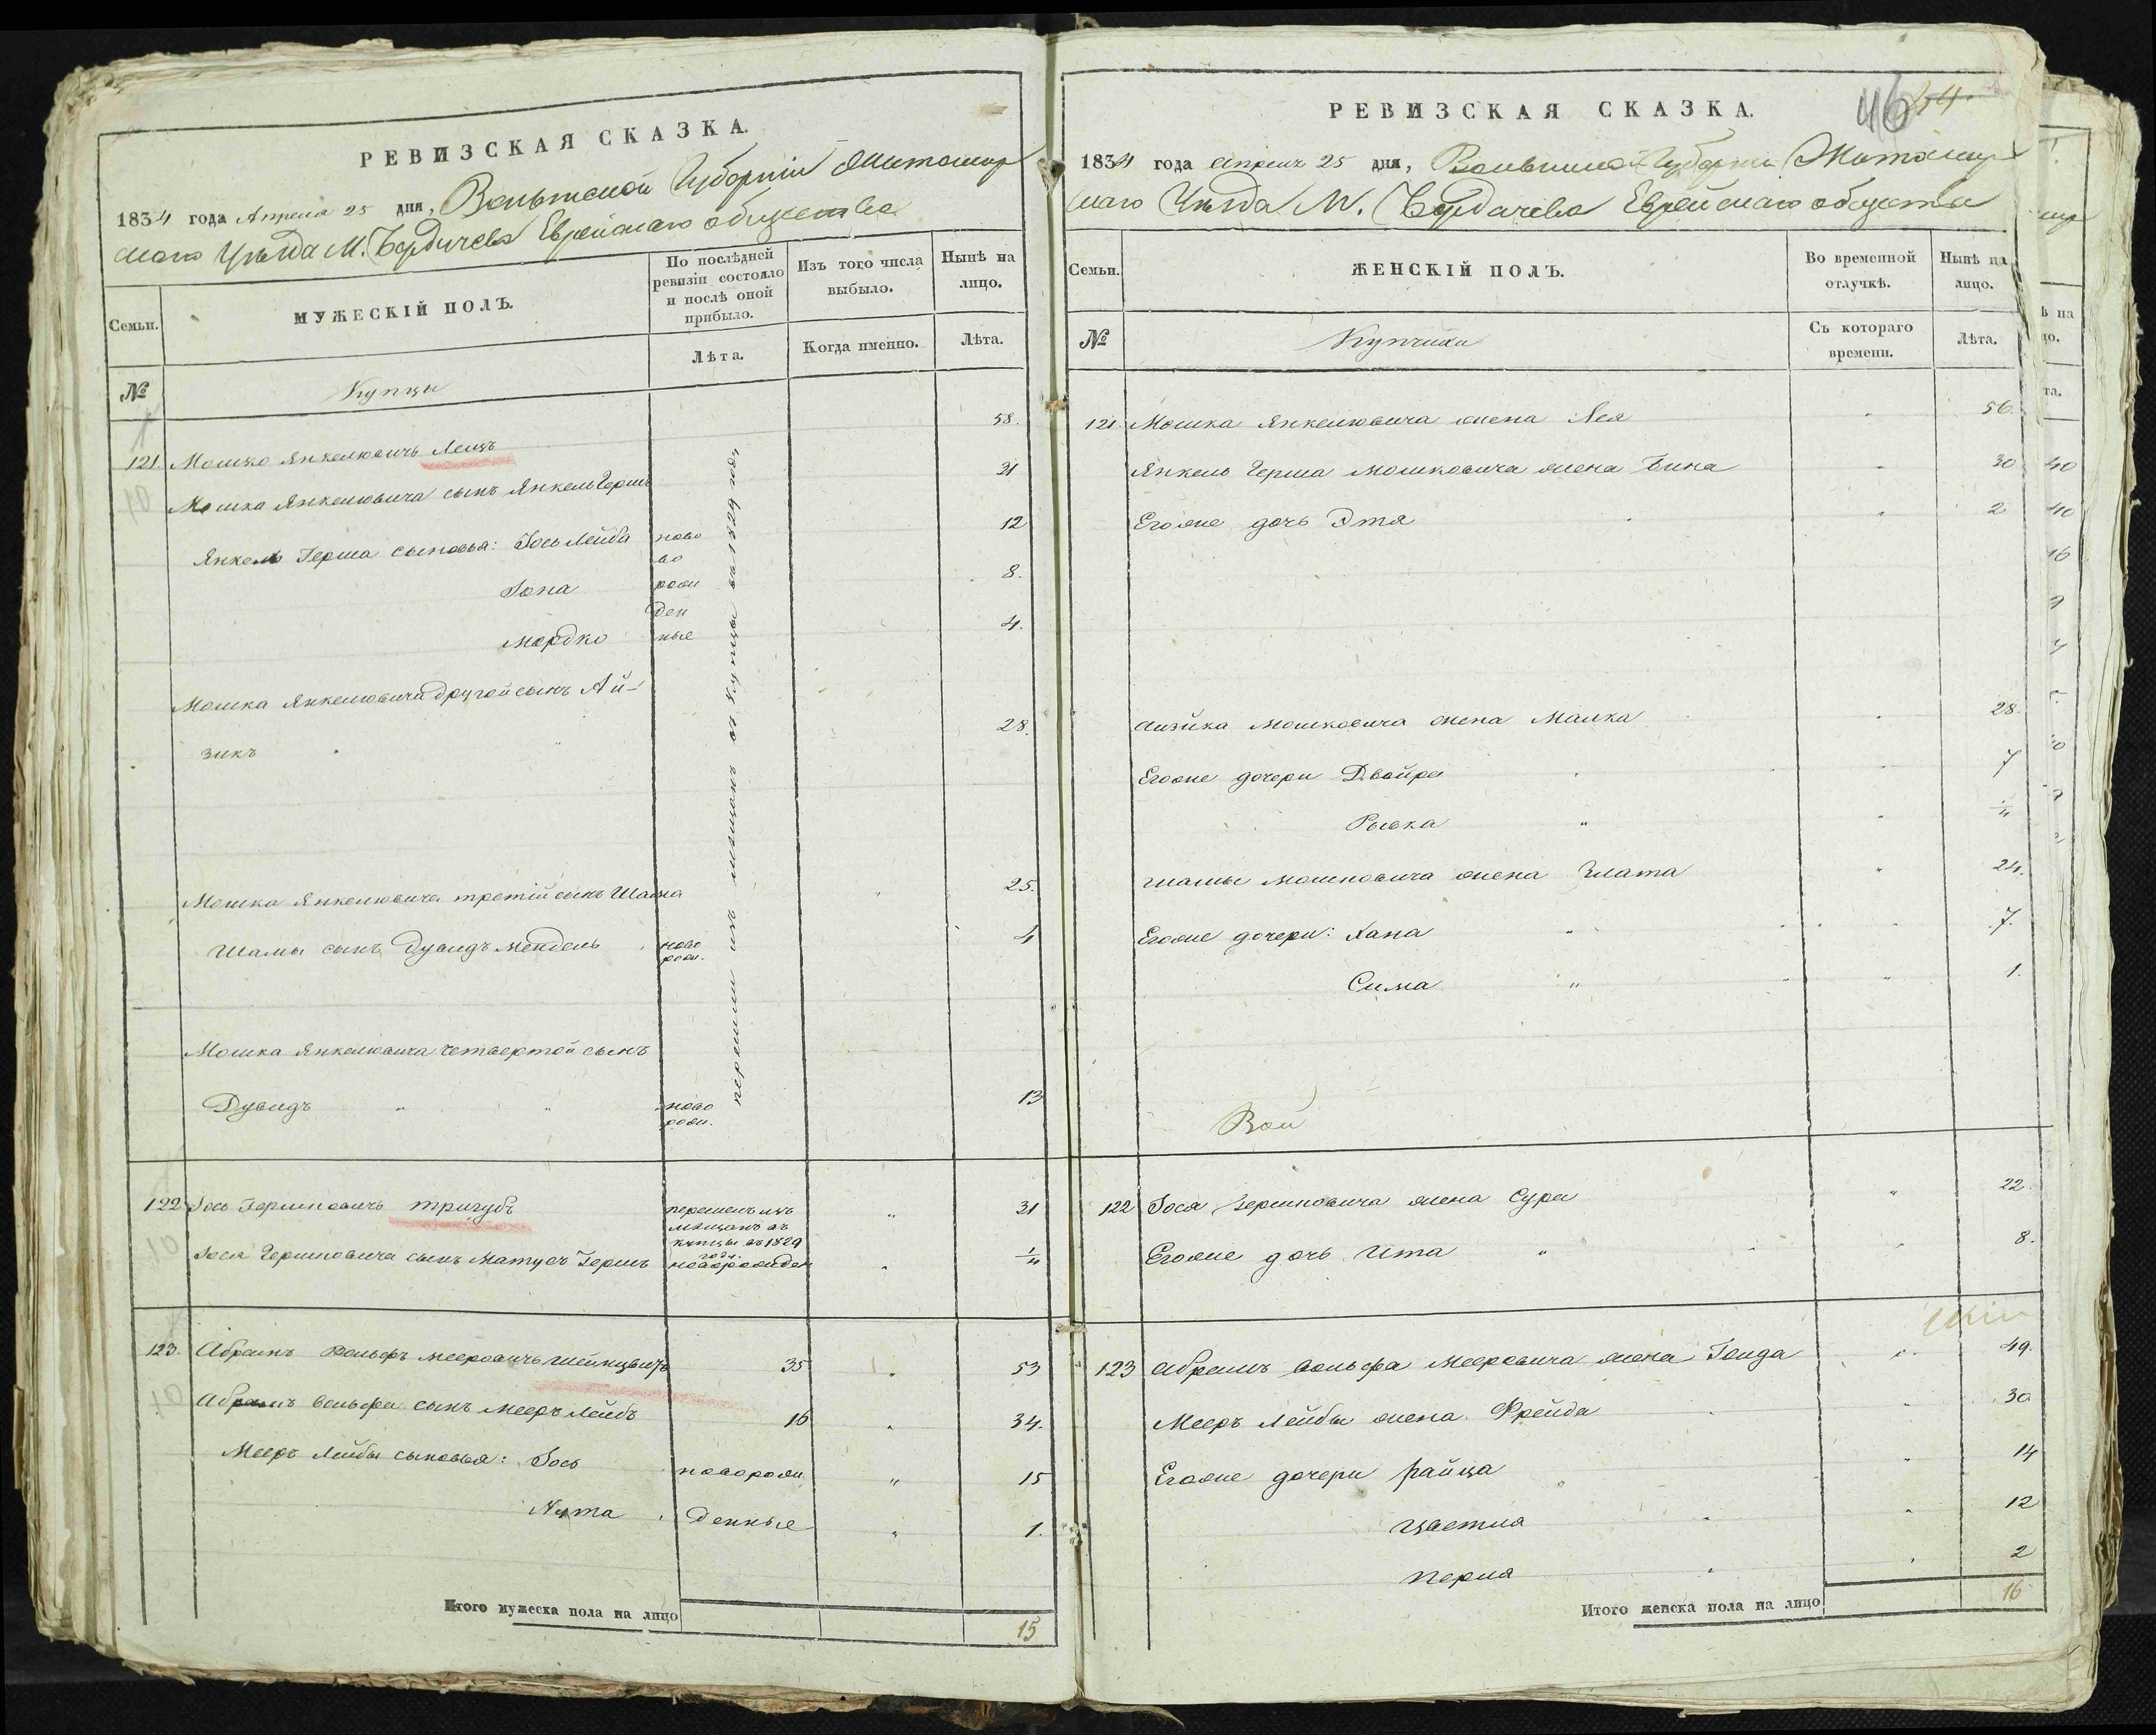 РЕВИЗСКАЯ СКАЗКА.
1834 года Апреля 25 дня, Волынской Губернии Житомир
скаго Уезда М. Бердичева Еврейскаго общества
Семьи.
МУЖЕСКІЙ ПОЛЪ.
По послѣдней ревизіи состояло и послѣ оной прибыло.
Изъ того числа выбыло.
Нынѣ на лицо.
№
Купцы
Лѣта.
Когда именно.
Лѣта.
121. Мошко Янкелювичь 58.
Мошка Янкелювича сынъ Янкель Гершъ 31
Янкель Герша сыновья: Іось Лейба 12
Іона 8.
Мордко 4.
ново
ро
жден
ные
перешли изъ мещанъ въ купцы въ 1829 году
Мошка Янкелювича другой сынъ Ай-
зикъ " " 28.
Мошка Янкелювича третій сынъ Шама " 25.
Шамы сынъ Дувидъ Мендель ново рож. 4
Мошка Янкелювича четвертой сынъ
Дувидъ " " ново рож. 13
122 Іось Гершковичь Тригубъ " 31
перешелъ изъ
мещанъ въ
купцы въ 1829
году.
Іося Гершковича сынъ Матусъ Гершъ новорожден " 1/4
123. Абрамъ Вольфъ Мееровичь 35 " 53
Абрамъ Вольфа сынъ Мееръ Лейбъ 16 " 34.
Мееръ Лейбы сыновья: Іось новорож " 15
Нута денные " 1.
Итого мужеска пола на лицо 15
РЕВИЗСКАЯ СКАЗКА.
46 54
1834 года Апреля 25 дня, Волынской Губерніи Житомир
скаго Уезда М. Бердичева Еврейскаго общества
Семьи.
ЖЕНСКІЙ ПОЛЪ.
Во временной отлучкѣ.
Нынѣ на лицо.
№
Купчихи
Съ котораго времени.
Лѣта.
121. Мошка Янкелювича жена Лея " 56.
Янкель Герша Мошковича жена Бина " 30
Егоже дочь Этя " 2
Айзика Мошковича жена Малка " 28.
Егоже дочери Двойра 7
Рывка " " 1/4
Шамы Мошковича жена Злата " 24.
Егоже дочери: Хана " 7.
Сима " " 1.
Вол
122 Іося Гершковича жена Сура " 22.
Егоже дочь Ита " 8.
123 Абрамъ Вольфа Мееровича жена Голда " 49.
Мееръ Лейбы жена Фрейда " 30
Егоже дочери Райца " 14
Цветля " 12
Перля " 2
Итого женска пола на лицо 16